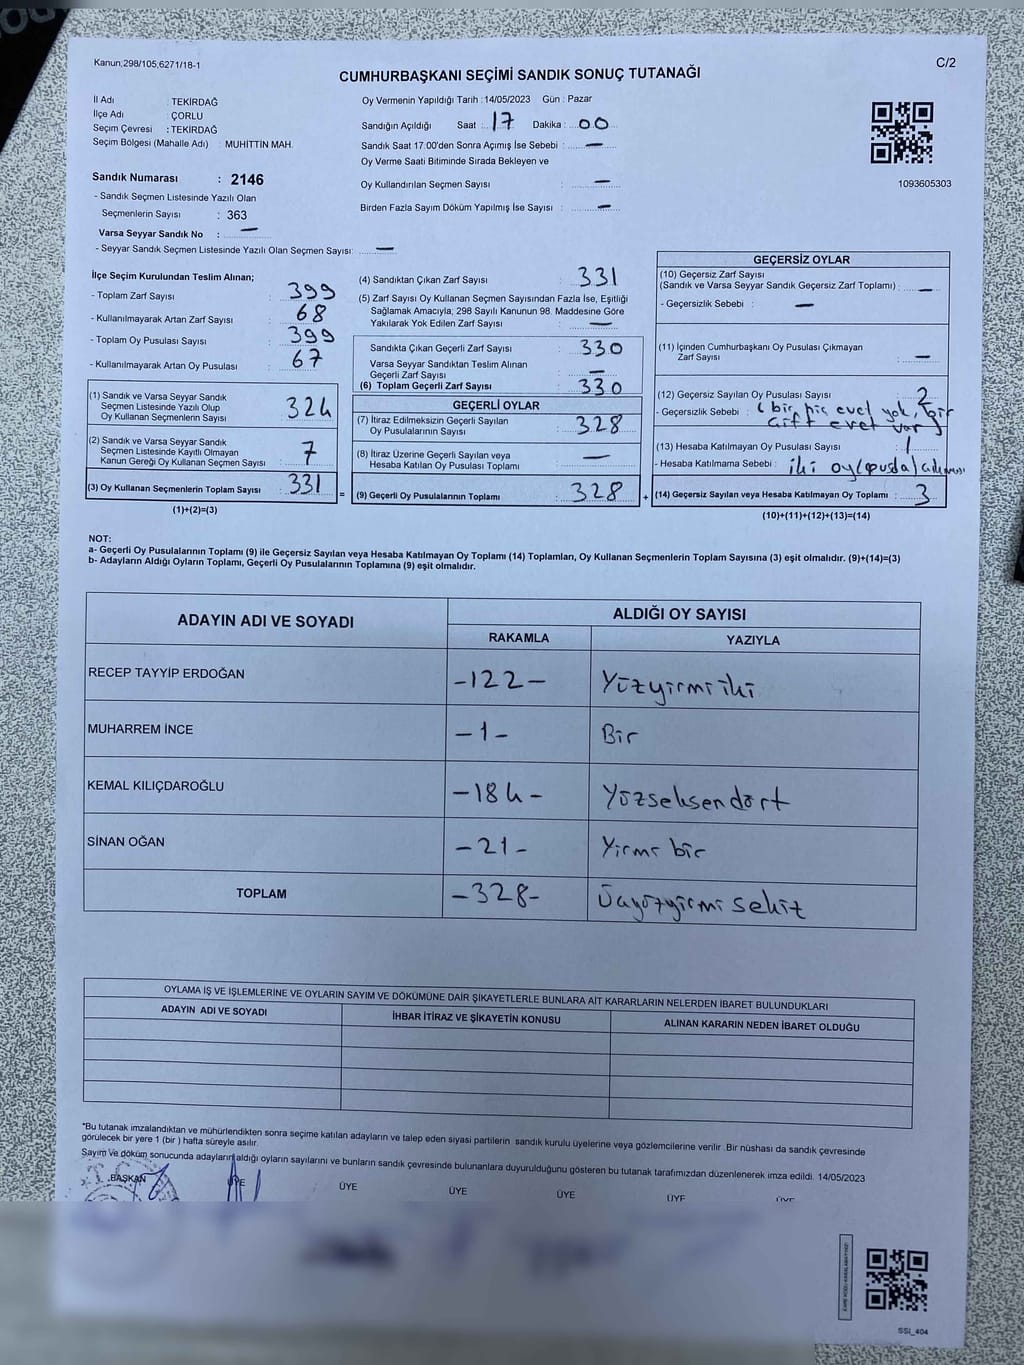 Kanun,298/105,6271/18-1
C/2
CUMHURBAŞKANI SEÇİMİ SANDIK SONUÇ TUTANAĞI
İl Adı : TEKİRDAĞ
İlçe Adı : ÇORLU
Seçim Çevresi : TEKİRDAĞ
Seçim Bölgesi (Mahalle Adı) : MUHİTTİN MAH.
Oy Vermenin Yapıldığı Tarih : 14/05/2023 Gün : Pazar
Sandığın Açıldığı Saat : 17 Dakika : 00
Sandık Saat 17.00'den Sonra Açımış İse Sebebi : —
Oy Verme Saati Bitiminde Sırada Bekleyen ve
Oy Kullandırılan Seçmen Sayısı : —
Birden Fazla Sayım Döküm Yapılmış İse Sayısı : —
1093605303
Sandık Numarası : 2146
- Sandık Seçmen Listesinde Yazılı Olan
Seçmenlerin Sayısı : 363
Varsa Seyyar Sandık No : —
- Seyyar Sandık Seçmen Listesinde Yazılı Olan Seçmen Sayısı: —
İlçe Seçim Kurulundan Teslim Alınan;
- Toplam Zarf Sayısı : 399
- Kullanılmayarak Artan Zarf Sayısı : 68
- Toplam Oy Pusulası Sayısı : 399
- Kullanılmayarak Artan Oy Pusulası : 67
(1) Sandık ve Varsa Seyyar Sandık
Seçmen Listesinde Yazılı Olup
Oy Kullanan Seçmenlerin Sayısı : 324
(2) Sandık ve Varsa Seyyar Sandık
Seçmen Listesinde Kayıtlı Olmayan
Kanun Gereği Oy Kullanan Seçmen Sayısı : 7
(3) Oy Kullanan Seçmenlerin Toplam Sayısı : 331
(1)+(2)=(3)
(4) Sandıktan Çıkan Zarf Sayısı : 331
(5) Zarf Sayısı Oy Kullanan Seçmen Sayısından Fazla İse, Eşitliği
Sağlamak Amacıyla, 298 Sayılı Kanunun 98. Maddesine Göre
Yakılarak Yok Edilen Zarf Sayısı : —
Sandıkta Çıkan Geçerli Zarf Sayısı : 330
Varsa Seyyar Sandıktan Teslim Alınan
Geçerli Zarf Sayısı : —
(6) Toplam Geçerli Zarf Sayısı : 330
GEÇERLİ OYLAR
(7) İtiraz Edilmeksizin Geçerli Sayılan
Oy Pusulalarının Sayısı : 328
(8) İtiraz Üzerine Geçerli Sayılan veya
Hesaba Katılan Oy Pusulası Toplamı : —
= (9) Geçerli Oy Pusulalarının Toplamı : 328
GEÇERSİZ OYLAR
(10) Geçersiz Zarf Sayısı
(Sandık ve Varsa Seyyar Sandık Geçersiz Zarf Toplamı) : —
- Geçersizlik Sebebi : —
(11) İçinden Cumhurbaşkanı Oy Pusulası Çıkmayan
Zarf Sayısı : —
(12) Geçersiz Sayılan Oy Pusulası Sayısı : 2
- Geçersizlik Sebebi : (bir hiç evet yok, bir
çift evet var)
(13) Hesaba Katılmayan Oy Pusulası Sayısı : 1
- Hesaba Katılmama Sebebi : iki oy
+ (14) Geçersiz Sayılan veya Hesaba Katılmayan Oy Toplamı : 3
(10)+(11)+(12)+(13)=(14)
NOT:
a- Geçerli Oy Pusulalarının Toplamı (9) ile Geçersiz Sayılan veya Hesaba Katılmayan Oy Toplamı (14) Toplamları, Oy Kullanan Seçmenlerin Toplam Sayısına (3) eşit olmalıdır. (9)+(14)=(3)
b- Adayların Aldığı Oyların Toplamı, Geçerli Oy Pusulalarının Toplamına (9) eşit olmalıdır.
ADAYIN ADI VE SOYADI
ALDIĞI OY SAYISI
RAKAMLA YAZIYLA
RECEP TAYYİP ERDOĞAN -122- Yüzyirmi iki
MUHARREM İNCE -1- Bir
KEMAL KILIÇDAROĞLU -184- Yüzseksendört
SİNAN OĞAN -21- Yirmi bir
TOPLAM -328- Üçyüzyirmi sekiz
OYLAMA İŞ VE İŞLEMLERİNE VE OYLARIN SAYIM VE DÖKÜMÜNE DAİR ŞİKAYETLERLE BUNLARA AİT KARARLARIN NELERDEN İBARET BULUNDUKLARI
ADAYIN ADI VE SOYADI İHBAR İTİRAZ VE ŞİKAYETİN KONUSU ALINAN KARARIN NEDEN İBARET OLDUĞU
*Bu tutanak imzalandıktan ve mühürlendikten sonra seçime katılan adayların ve talep eden siyasi partilerin sandık kurulu üyelerine veya gözlemcilerine verilir. Bir nüshası da sandık çevresinde
görülecek bir yere 1 (bir ) hafta süreyle asılır.
Sayım ve döküm sonucunda adayların aldığı oyların sayılarını ve bunların sandık çevresinde bulunanlara duyurulduğunu gösteren bu tutanak tarafımızdan düzenlenerek imza edildi. 14/05/2023
BAŞKAN ÜYE ÜYE ÜYE ÜYE ÜYE ÜYE
SSI_404